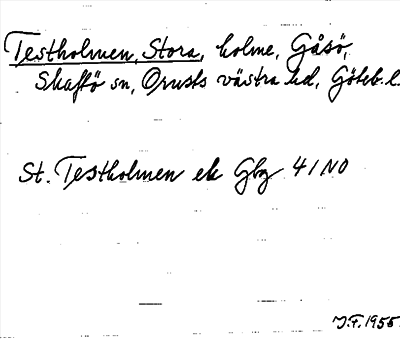 Testholmen, Stora, holme, Gåsö,
Skaftö sn, Orusts västra hd, Göteb. l.
St. Testholmen ek Gbg 41 NO
J.F. 1955